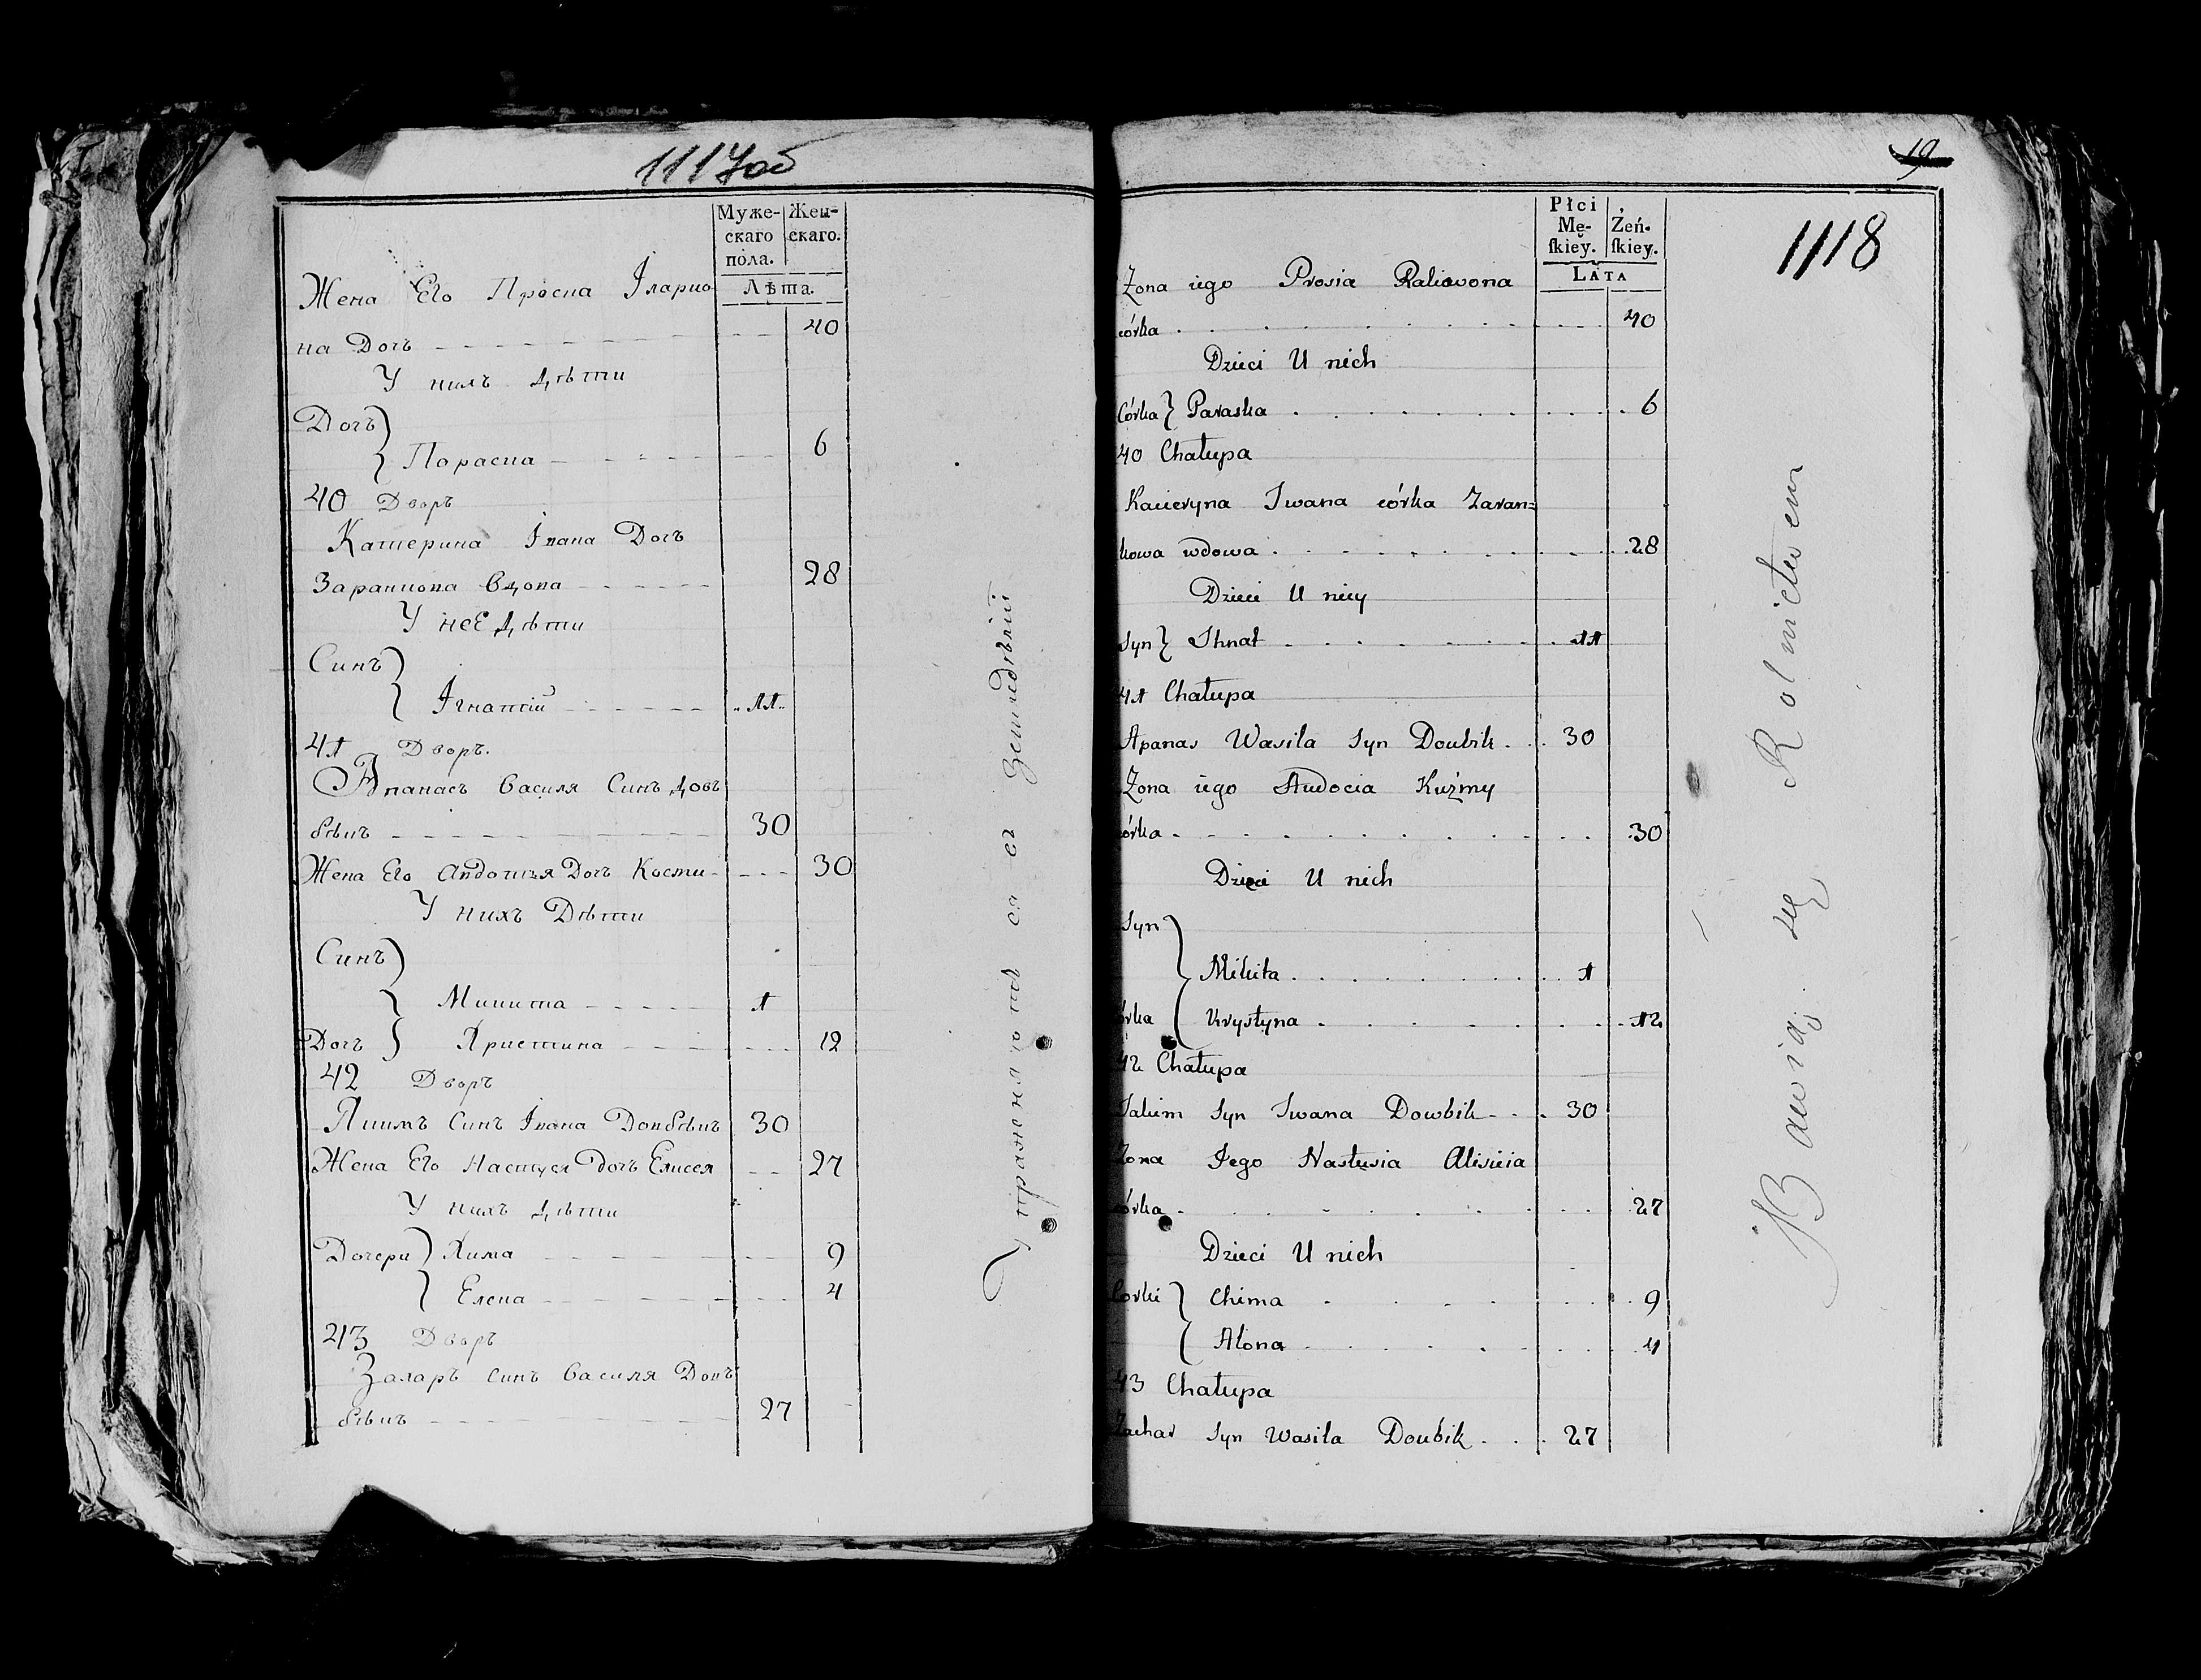 1117об
Муже-
скаго
пола.
Жен-
скаго.
Лѣта.
Жена Его Просиа Іларио
на Дочъ 40
У нихъ дѣти
Дочъ
Параска 6
40 Дворъ
Катерина Івана Дочъ
Заранкова Вдова 28
У неЕ дѣти
Синъ
Ігнатій 11
41 Дворъ.
Апанасъ Василя Синъ Дов
бѣикъ 30
Жена Его Авдотья Дочъ Косми 30
У нихъ Дѣти
Синъ
Микита 1
Дочъ Христина 12
42 Дворъ
Якимъ Синъ Івана Довбѣикъ 30
Жена Его Настуся Дочъ Елисея 27
У нихъ Дѣти
Дочери Хима 9
Елена 4
43 Дворъ
Захаръ Синъ Василя Дов
бѣикъ 27
Упражняютъ ся ег Земледѣлій
19
1118
Płci
Mę-
skiey.
Żeń-
skiey.
LATA
Żona iego Prosia Raliowona
córka 40
Dzieci U nich
Córka Paraska 6
40 Chałupa
Kacieryna Iwana córka Zaran=
kowa wdowa 28
Dzieci U niey
Syn Ihnat 11
41 Chałupa
Apanas Wasila Syn Doubik 30
Żona iego Audocia Kuźmy
córka 30
Dzieci U nich
Syn
Mikita 1
córka Krystyna 12
42 Chałupa
Jakim Syn Iwana Dowbik 30
Żona Jego Nastusia Alisieia
córka 27
Dzieci U nich
Corki Chima 9
Alona 4
43 Chałupa
Zachar Syn Wasila Doubik 27
Bawią się Rolnictwem